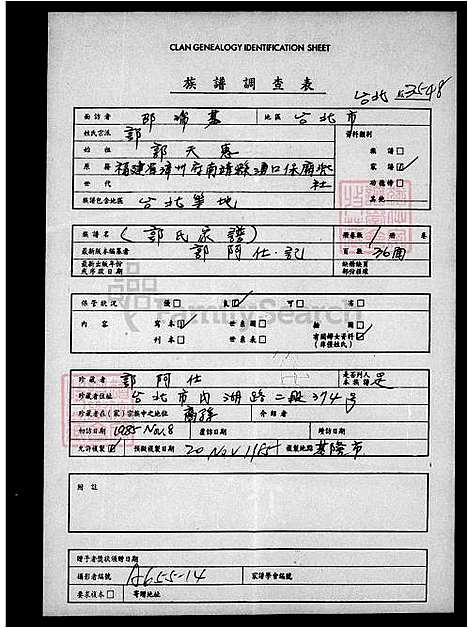 CLAN GENEALOGY IDENTIFICATION SHEET
族譜調查表
台北 3548
面訪者 邵瑞基 地區 台北市
姓氏宗派 郭 資料類別
始祖 郭天惠 族譜
原籍 福建省漳州府南靖縣 家譜 ☑
世代 社 功德榜
族譜包含地區 台北等地 其他
族譜名 (郭氏家譜) 冊卷數 1 冊 卷
最新版本編纂者 郭阿仕.記 頁數 36面
最新出版年份或序跋日期 缺冊缺頁部份註標
保管狀況 優□ 良☑ 可□ 劣□
內容 寫本☑ 世系圖□ 繪圖□
刊本□ 世系表□ 有關婦女資料(非僅姓氏)☑
FamilySearch
珍藏者 郭阿仕 是否列入本族譜 是
珍藏者住址 台北市內湖路二段374号
珍藏者在(家)宗族中之地位 裔孫 介紹者
初訪日 1985 Nov. 8 應訪日 續訪日
允許複製☑ 預擬複製日期 20 Nov 1985 複製地點 基隆市
附註
贈予者獎狀頒贈日期
攝影者編號 A655-14 家譜學會編號
要求謄本□ 寄贈地址